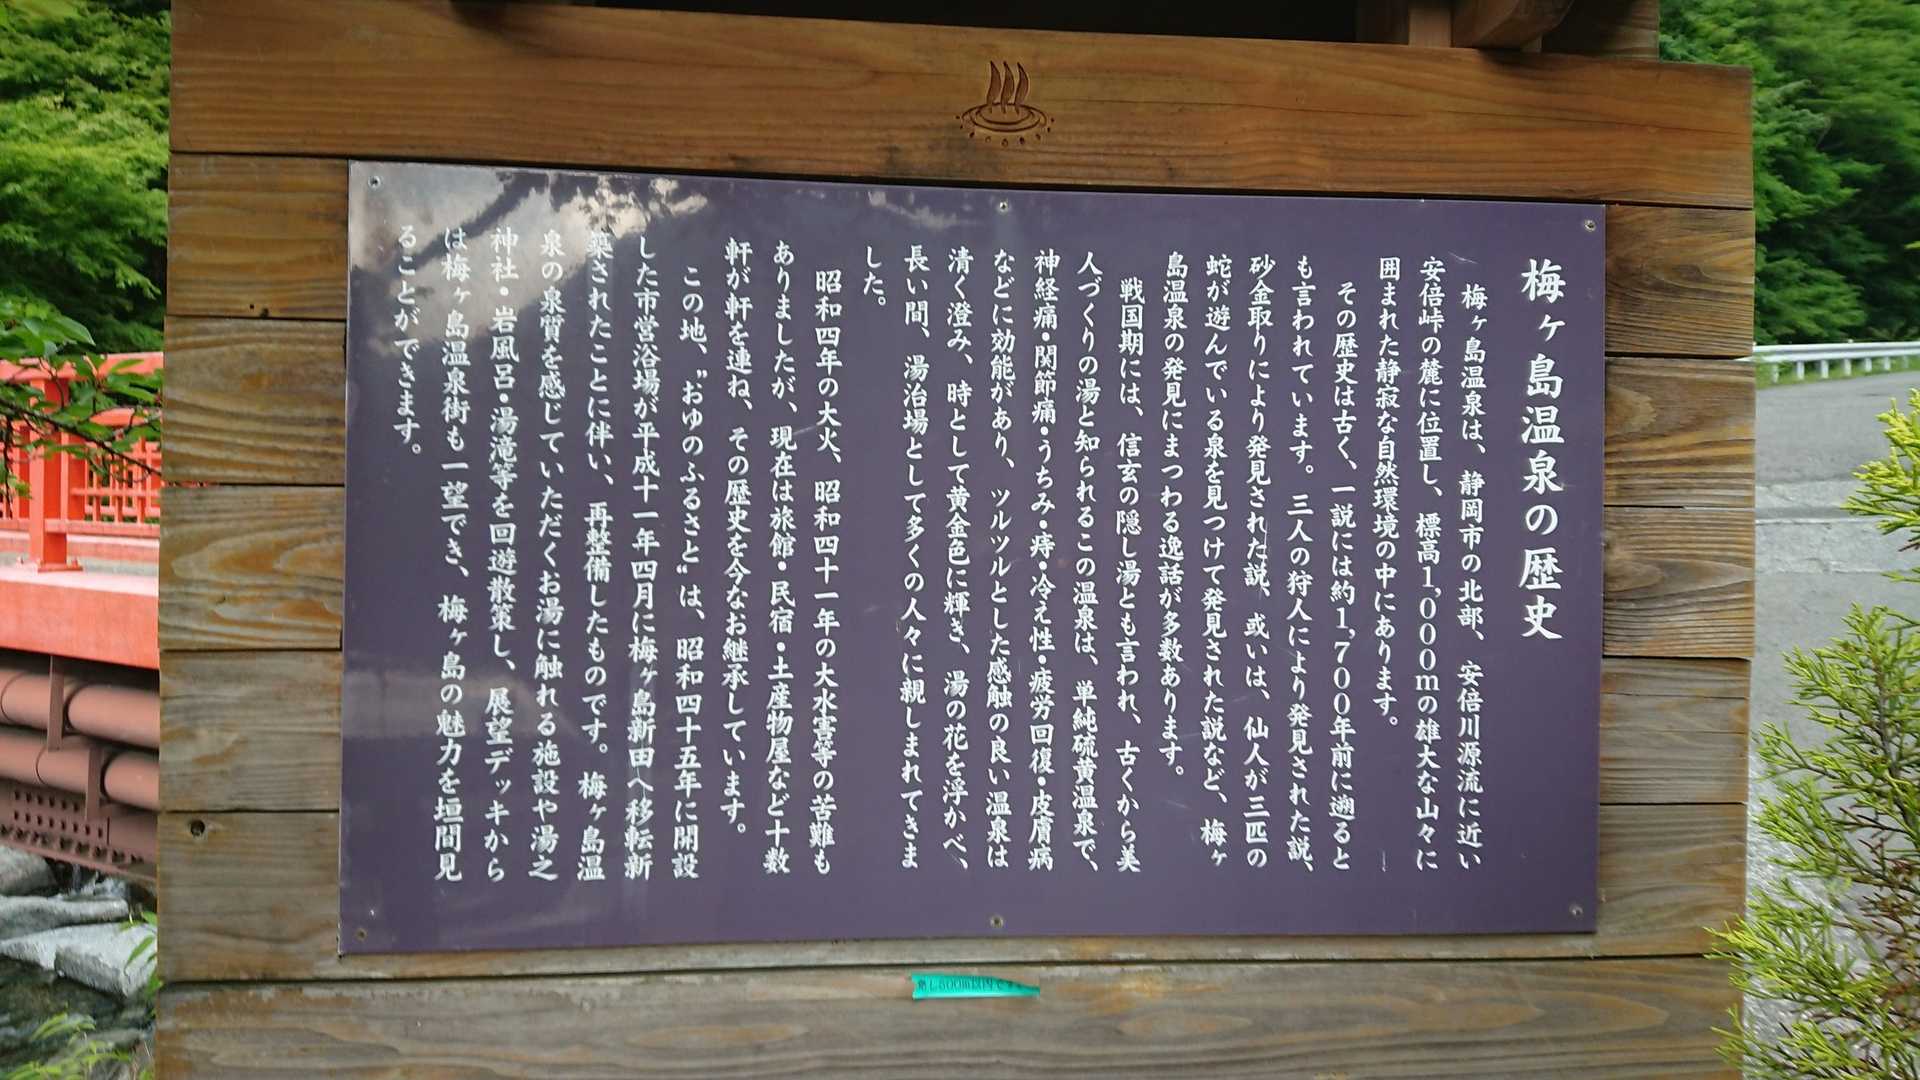 梅ヶ島温泉の歴史
梅ヶ島温泉は、静岡市の北部、安倍川源流に近い
安倍峠の麓に位置し、標高1,000mの雄大な山々に
囲まれた静寂な自然環境の中にあります。
その歴史は古く、一説には約1,700年前に遡ると
も言われています。三人の狩人により発見された説、
砂金取りにより発見された説、或いは、仙人が三匹の
蛇が遊んでいる泉を見つけて発見された説など、梅ヶ
島温泉の発見にまつわる逸話が多数あります。
戦国期には、信玄の隠し湯とも言われ、古くから美
人づくりの湯と知られるこの温泉は、単純硫黄温泉で、
神経痛・関節痛・うちみ・痔・冷え性・疲労回復・皮膚病
などに効能があり、ツルツルとした感触の良い温泉は
清く澄み、時として黄金色に輝き、湯の花を浮かべ、
長い間、湯治場として多くの人々に親しまれてきま
した。
昭和四年の大火、昭和四十一年の大水害等の苦難も
ありましたが、現在は旅館・民宿・土産物屋など十数
軒が軒を連ね、その歴史を今なお継承しています。
この地、〝おゆのふるさと〟は、昭和四十五年に開設
した市営浴場が平成十一年四月に梅ヶ島新田へ移転新
築されたことに伴い、再整備したものです。梅ヶ島温
泉の泉質を感じていただくお湯に触れる施設や湯之
神社・岩風呂・湯滝等を回遊散策し、展望デッキから
は梅ヶ島温泉街も一望でき、梅ヶ島の魅力を垣間見
ることができます。
し500m以内です